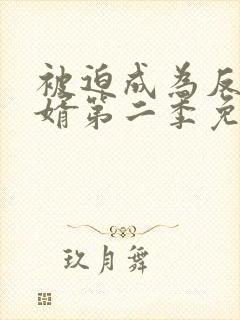 被迫成为反
婿第二季免
玖月舞